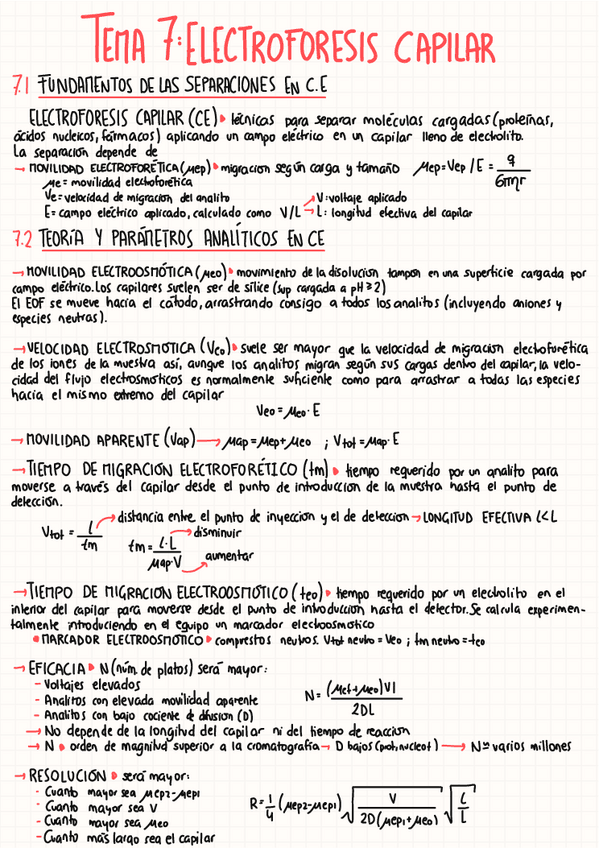 TEMA 7: ELECTROFORESIS CAPILAR
7.1 FUNDAMENTOS DE LAS SEPARACIONES EN C.E
ELECTROFORESIS CAPILAR (CE) • técnicas para separar moléculas cargadas (proteínas,
ácidos nucleicos, fármacos) aplicando un campo eléctrico en un capilar lleno de electrolito.
La separación depende de
→ MOVILIDAD ELECTROFORÉTICA (μep) • migración según carga y tamaño μep = Vep / E = q / 6πηr
μe = movilidad electroforética
Ve = velocidad de migración del analito
E = campo eléctrico aplicado, calculado como V/L → V: voltaje aplicado
→ L: longitud efectiva del capilar
7.2 TEORÍA Y PARÁMETROS ANALÍTICOS EN CE
→ MOVILIDAD ELECTROOSMÓTICA (μeo) • movimiento de la disolución tampón en una superficie cargada por
campo eléctrico. Los capilares suelen ser de sílice (sup cargada a pH ≥ 2)
El EOF se mueve hacia el cátodo, arrastrando consigo a todos los analitos (incluyendo aniones y
especies neutras).
→ VELOCIDAD ELECTROSMÓTICA (Veo) • suele ser mayor que la velocidad de migración electroforética
de los iones de la muestra así, aunque los analitos migran según sus cargas dentro del capilar, la velo-
cidad del flujo electrosmóticos es normalmente suficiente como para arrastrar a todas las especies
hacia el mismo extremo del capilar
Veo = μeo · E
→ MOVILIDAD APARENTE (Vap) → μap = μep + μeo ; Vtot = μap · E
→ TIEMPO DE MIGRACION ELECTROFORÉTICO (tm) • tiempo requerido por un analito para
moverse a través del capilar desde el punto de introducción de la muestra hasta el punto de
detección.
Vtot = l / tm → distancia entre el punto de inyección y el de detección → LONGITUD EFECTIVA l<L
tm = l·L / μap·V → disminuir
→ aumentar
→ TIEMPO DE MIGRACION ELECTROOSMÓTICO (teo) • tiempo requerido por un electrolito en el
interior del capilar para moverse desde el punto de introducción hasta el detector. Se calcula experimen-
talmente introduciendo en el equipo un marcador electroosmótico
• MARCADOR ELECTROOSMÓTICO • comprestos neutros. Vtot neutro = Veo ; tm neutro = teo
→ EFICACIA • N (núm. de platos) será mayor:
- Voltajes elevados
- Analitos con elevada movilidad aparente
- Analitos con bajo cociente de difusión (D)
N = (μef + μeo) V l / 2DL
→ No depende de la longitud del capilar ni del tiempo de reacción
→ N • orden de magnitud superior a la cromatografía → D bajos (prot, nucleot) → N≈ varios millones
→ RESOLUCIÓN • será mayor:
- Cuanto mayor sea μep2 - μep1
- Cuanto mayor sea V
- Cuanto mayor sea μeo
- Cuanto más largo sea el capilar
R = 1/4 (μep2 - μep1) √ V / 2D(μep1 + μeo) √ l / L